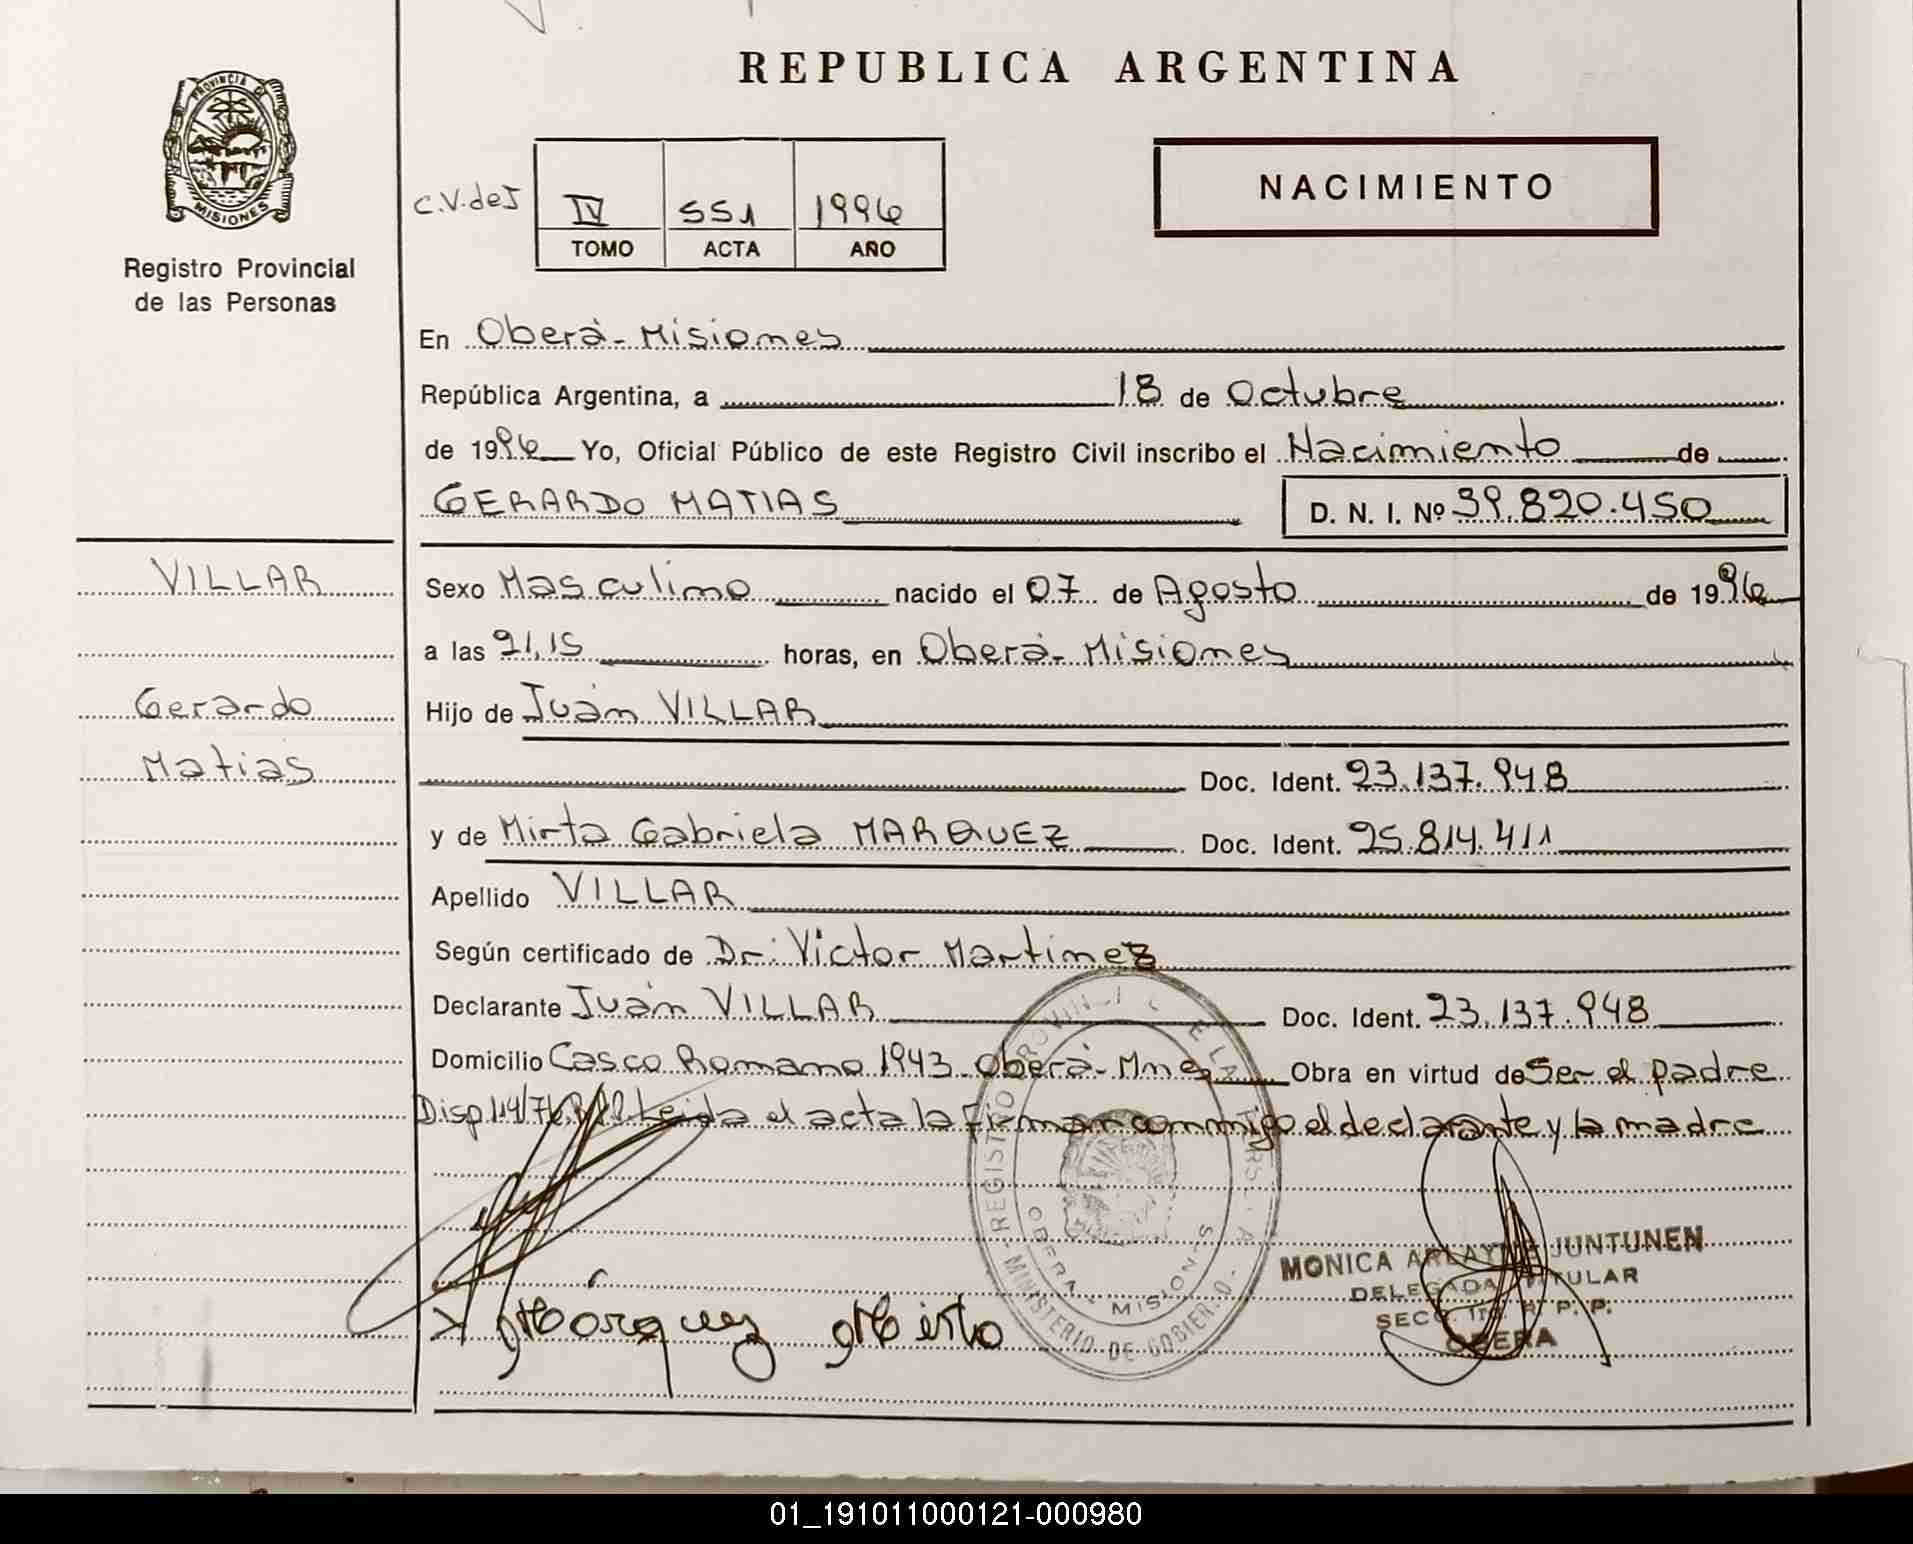 REPUBLICA ARGENTINA
PROVINCIA D
MISIONES
Registro Provincial
de las Personas
C.V.deJ
IV 551 1996
TOMO ACTA AÑO
NACIMIENTO
En Oberá - Misiones
República Argentina, a 18 de Octubre
de 1996 Yo, Oficial Público de este Registro Civil inscribo el Nacimiento de
GERARDO MATIAS D. N. I. Nº 39.820.450
VILLAR
Gerardo
Matias
Sexo Masculino nacido el 07 de Agosto de 1996
a las 21,15 horas, en Oberá - Misiones
Hijo de Juan VILLAR
Doc. Ident. 23.137.948
y de Mirta Gabriela MARQUEZ Doc. Ident. 25.814.411
Apellido VILLAR
Según certificado de Dr. Victor Martinez
Declarante Juan VILLAR Doc. Ident. 23.137.948
Domicilio Casco Romano 1943 - Oberá - Mnes Obra en virtud de Ser el padre
Disp. 114/76 Leida el acta la firman conmigo el declarante y la madre
REGISTRO PROVIN
OBERA - MISIONES
MINISTERIO DE GOBIERNO
Márquez Mirta
MONICA JUNTUNEN
DELEGADA TITULAR
OBERA
01_191011000121-000980